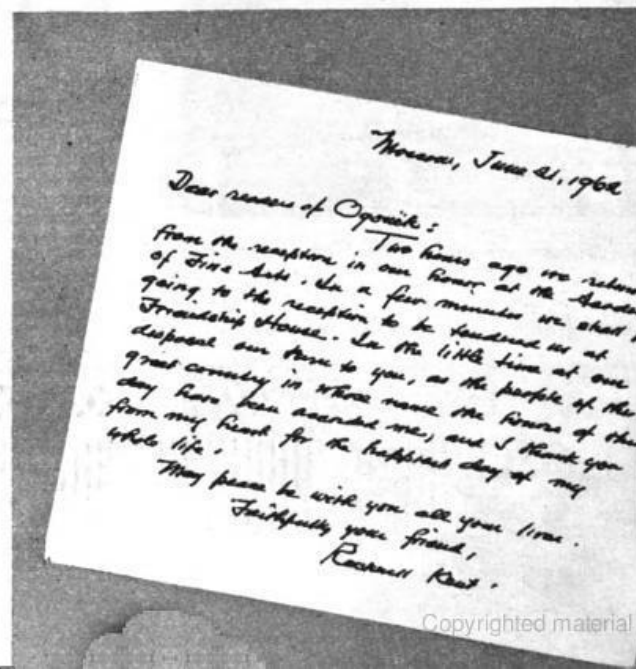 Moscow, June 21, 1962
Dear readers of Ogonëk:
Two hours ago we return
from the reception in our honor at the Academ
of Fine Arts. In a few minutes we shall b
going to the reception to be tendered us at
Friendship House. In the little time at our
disposal we turn to you, as the people of the
great country in whose name the honors of this
day have been accorded me, and I thank you
from my heart for the happiest day of my
whole life.
May peace be with you all your lives.
Faithfully your friend,
Rockwell Kent.
Copyrighted material